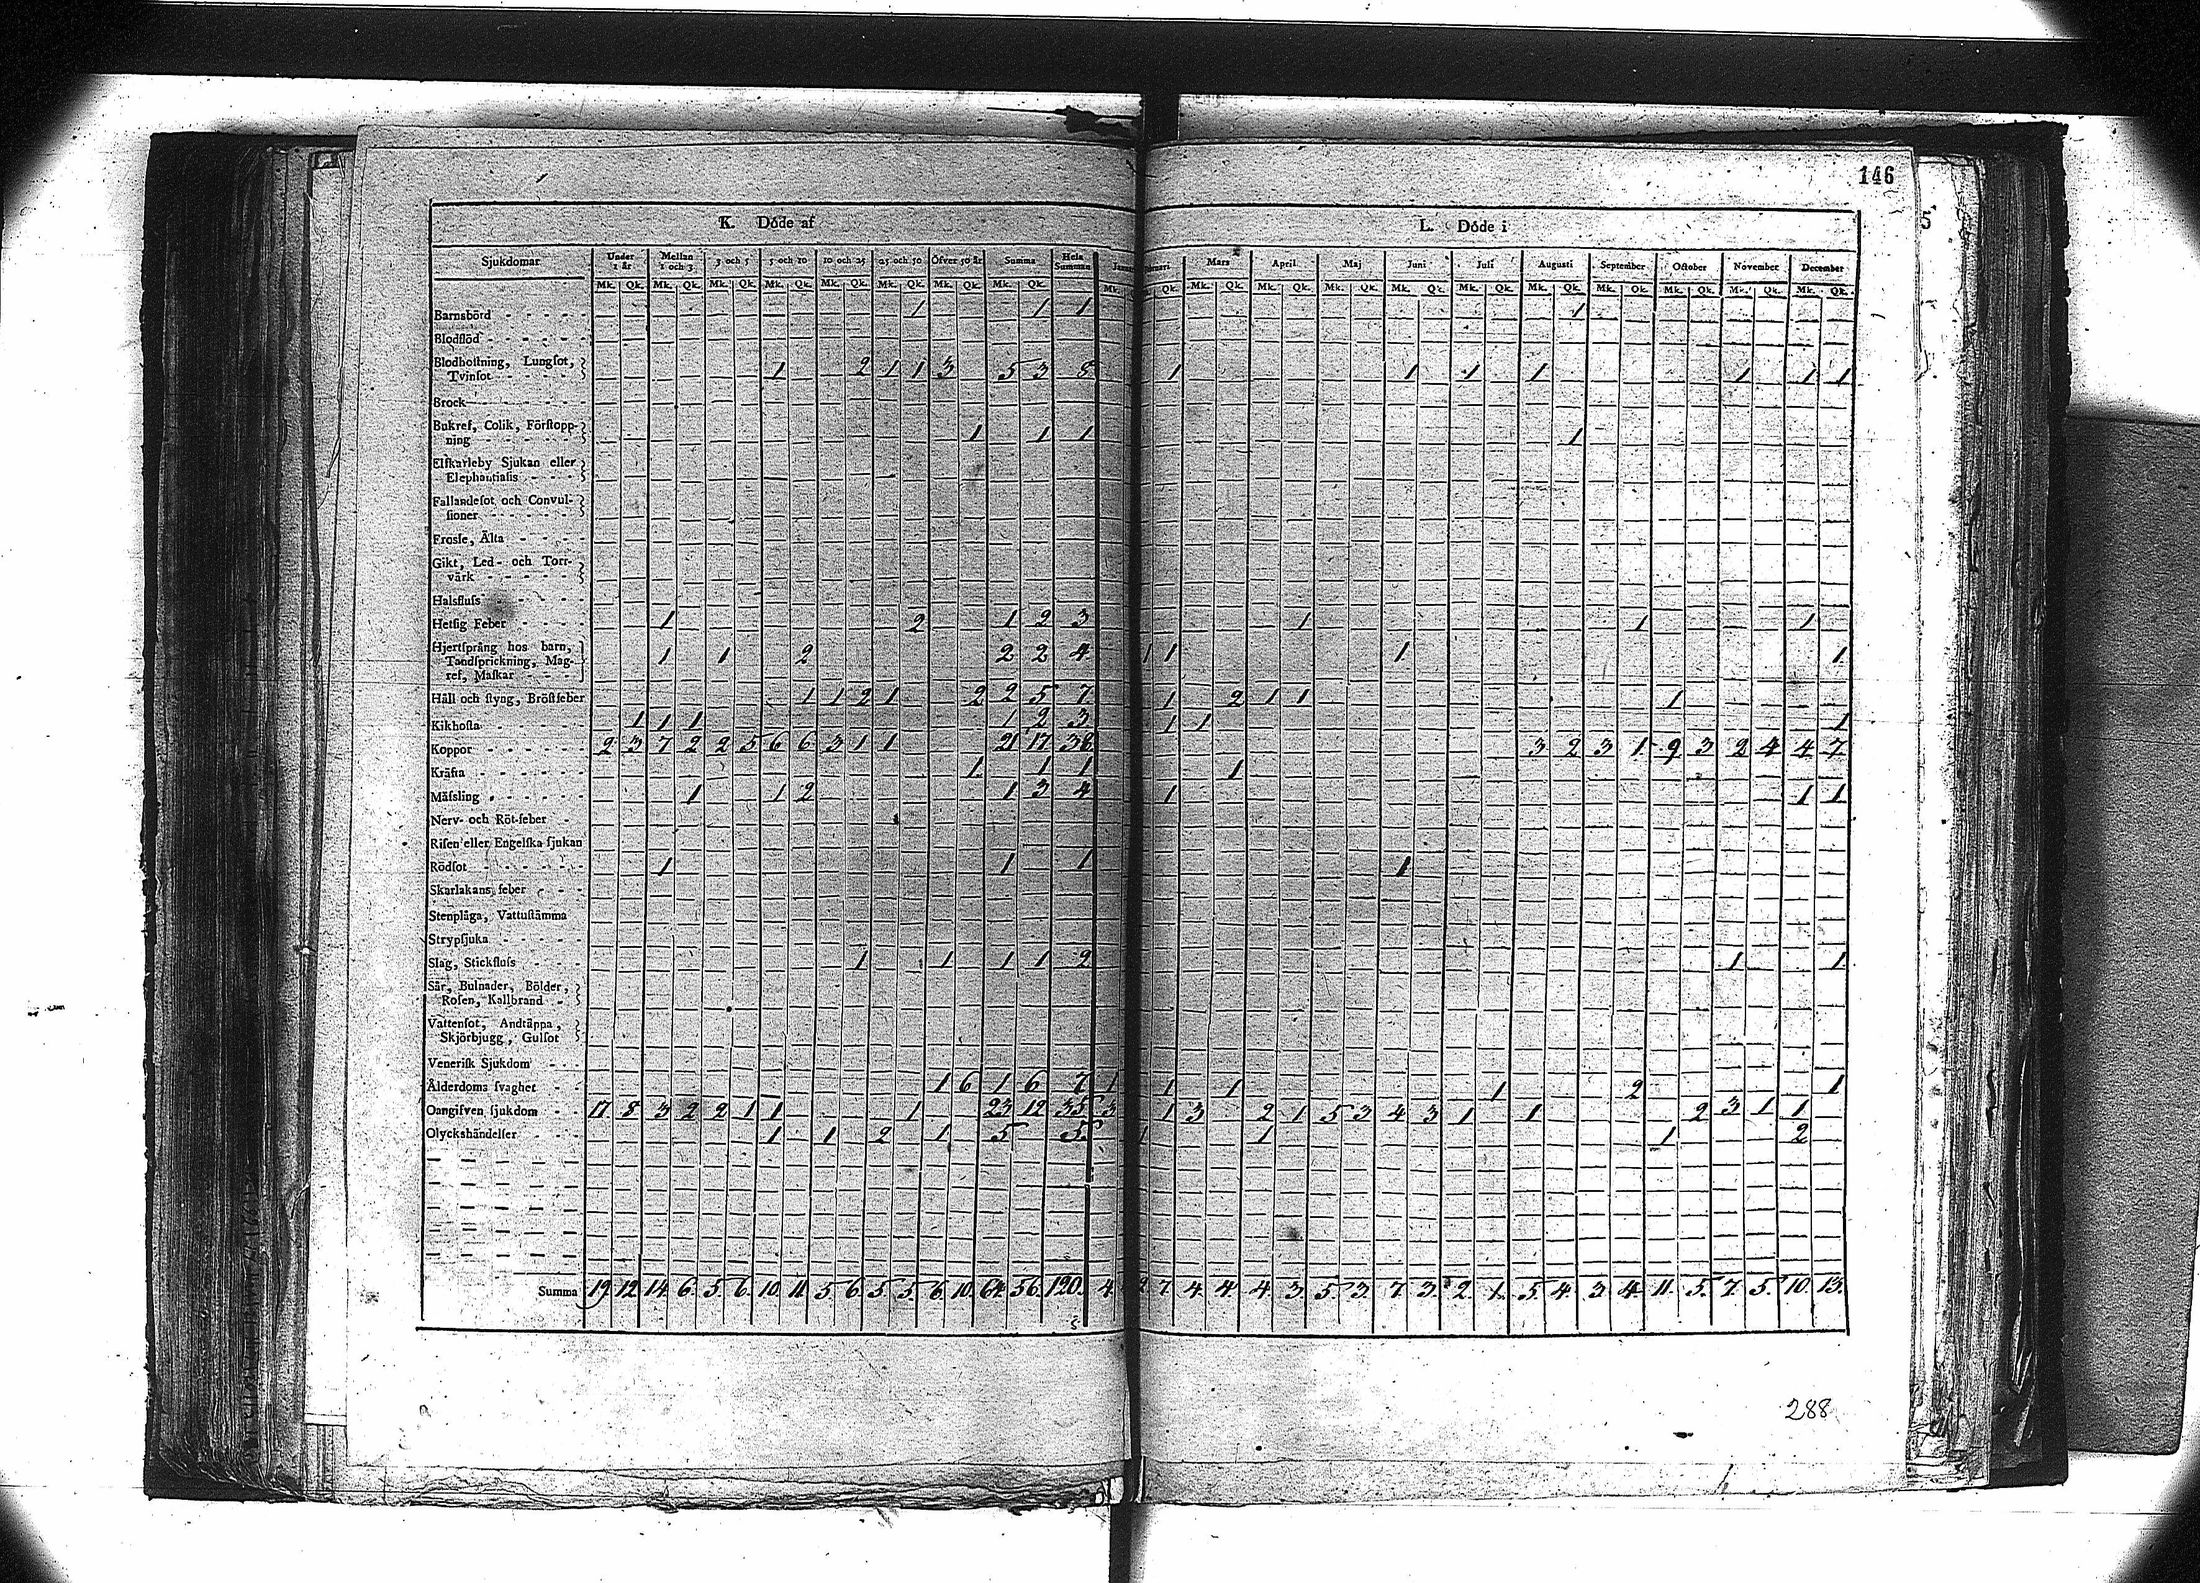 146
5
K. Döde af L. Döde i
Sjukdomar Under 1 år Mellan 1 och 3 3 och 5 5 och 10 10 och 25 25 och 50 Öfver 50 år Summa Hela Summan Mars April Maj Juni Juli Augusti September October November December
Mk. Qk. Mk. Qk. Mk. Qk. Mk. Qk. Mk. Qk. Mk. Qk. Mk. Qk. Mk. Qk. Mk. Qk. Mk. Qk. Mk. Qk. Mk. Qk. Mk. Qk. Mk. Qk. Mk. Qk. Mk. Qk. Mk. Qk. Mk. Qk. Mk. Qk.
Barnsbörd 1 1 1 1
Blodflöd
Blodhostning, Lungsot,
Tvinsot 1 2 1 1 3 5 3 8 1 1 1 1 1 1 1
Brock
Bukref, Colik, Förstopp-
ning 1 1 1 1
Elskarleby Sjukan eller
Elephantiasis
Fallandesot och Convul-
sioner
Frossa, Älta
Gikt, Led- och Torr-
värk
Halsfluss
Hetsig Feber 1 2 1 2 3 1 1 1
Hjertsprång hos barn,
Tandsprickning, Mag-
ref, Maskar 1 1 2 2 2 4 1 1 1 1
Håll och styng, Bröstfeber 1 1 2 1 2 2 5 7 1 2 1 1 1
Kikhosta 1 1 1 1 2 3 1 1 1
Koppor 2 3 7 2 2 5 6 6 3 1 1 21 17 38 3 2 3 1 9 3 2 4 4 7
Kräfta 1 1 1 1
Mässling 1 1 2 1 3 4 1 1 1
Nerv- och Röt-feber
Risen eller Engelska sjukan
Rödsot 1 1 1 1
Skarlakans feber
Stenplåga, Vattustämma
Strypsjuka
Slag, Stickfluss 1 1 1 1 2 1 1
Sår, Bulnader, Bölder,
Rosen, Kallbrand
Vattensot, Andtäppa,
Skjörbjugg, Gulsot
Venerisk Sjukdom
Ålderdoms svaghet 1 6 1 6 7 1 1 1 1 2 1
Oangifven sjukdom 17 8 3 2 2 1 1 1 23 12 35 3 1 3 2 1 5 3 4 3 1 1 2 3 1 1
Olyckshändelser 1 1 2 1 5 5 1 1 1 2
Summa 19 12 14 6 5 6 10 11 5 6 5 5 6 10 64 56 120 4 2 7 4 4 4 3 5 3 7 3 2 1 5 4 3 4 11 5 7 5 10 13
288